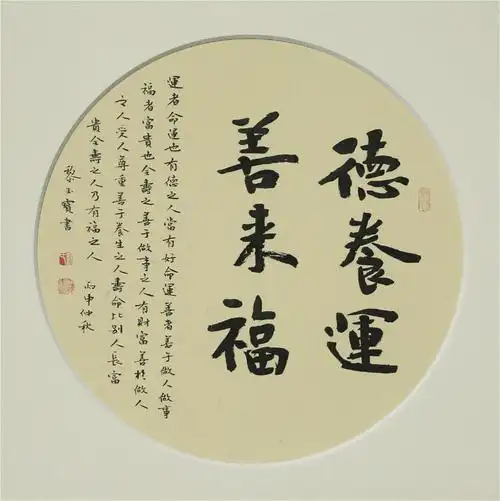 德養運
善来福
運者命運也有德之人當有好命運善者善于做人做事
福者富貴也全壽之善于做事之人有財富善於做人
之人受人尊重善于養生之人壽命比别人長富
貴全壽之人乃有福之人
丙申仲秋
黎玉寳書